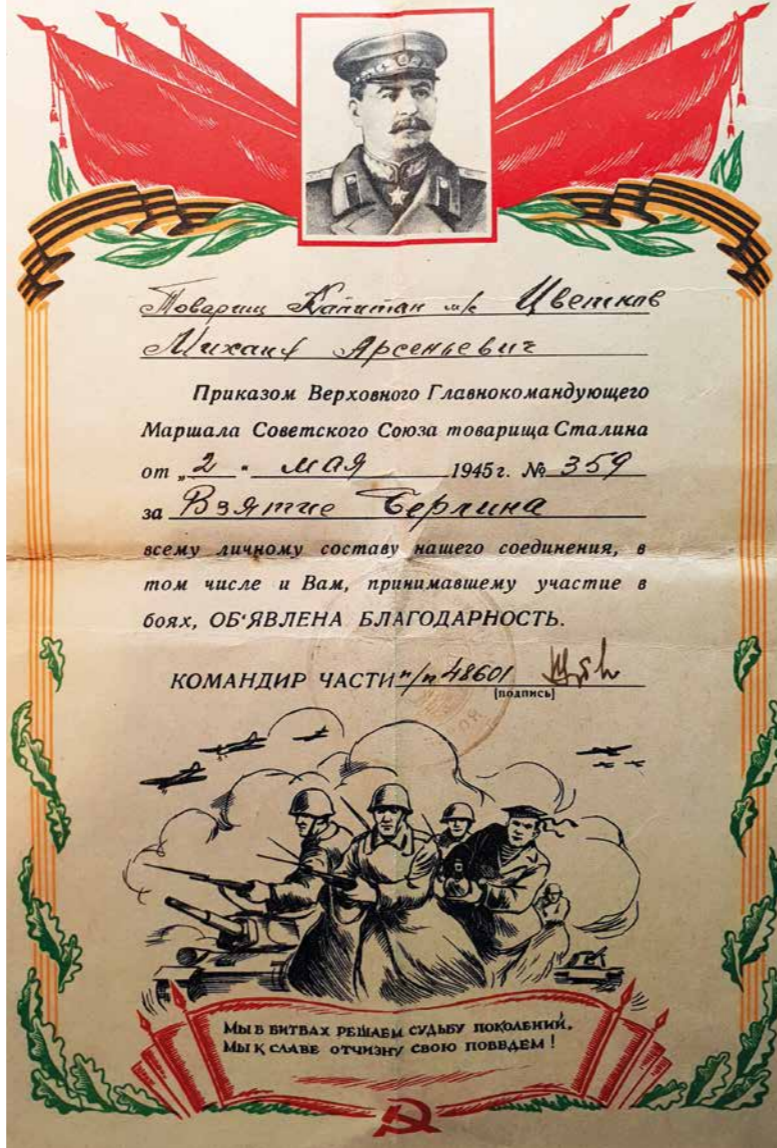 Товарищ Капитан м/с Цветков
Михаил Арсеньевич
Приказом Верховного Главнокомандующего
Маршала Советского Союза товарища Сталина
от „2“ мая 1945 г. № 359
за Взятие Берлина
всему личному составу нашего соединения, в
том числе и Вам, принимавшему участие в
боях, ОБ'ЯВЛЕНА БЛАГОДАРНОСТЬ.
КОМАНДИР ЧАСТИ п/п 48601
(подпись)
МЫ В БИТВАХ РЕШАЕМ СУДЬБУ ПОКОЛЕНИЙ,
МЫ К СЛАВЕ ОТЧИЗНУ СВОЮ ПОВЕДЕМ!